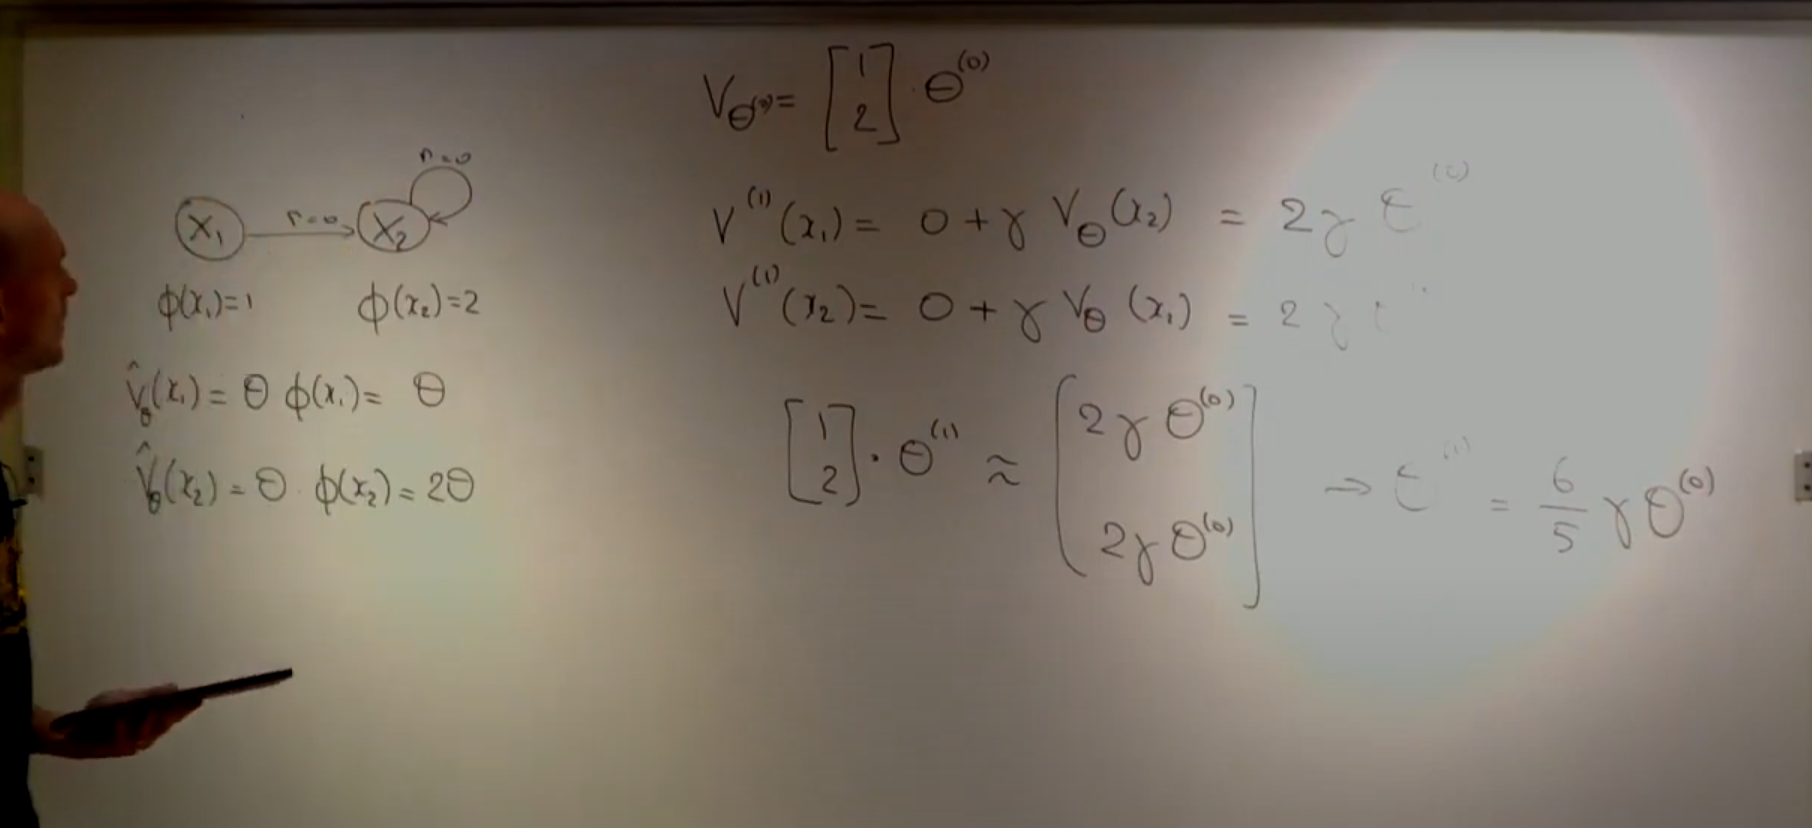 r=0
X₁ r=0 X₂
ϕ(x₁)=1 ϕ(x₂)=2
V̂_θ(x₁) = θ ϕ(x₁) = θ
V̂_θ(x₂) = θ · ϕ(x₂) = 2θ
V_θ⁽⁰⁾ = [1 2] · θ⁽⁰⁾
V⁽¹⁾(x₁) = 0 + γ V_θ(x₂) = 2γ θ⁽⁰⁾
V⁽¹⁾(x₂) = 0 + γ V_θ(x₁) = 2γ
[1 2] · θ⁽¹⁾ ≈ [2γθ⁽⁰⁾ 2γθ⁽⁰⁾] → θ⁽¹⁾ = 6/5 γθ⁽⁰⁾